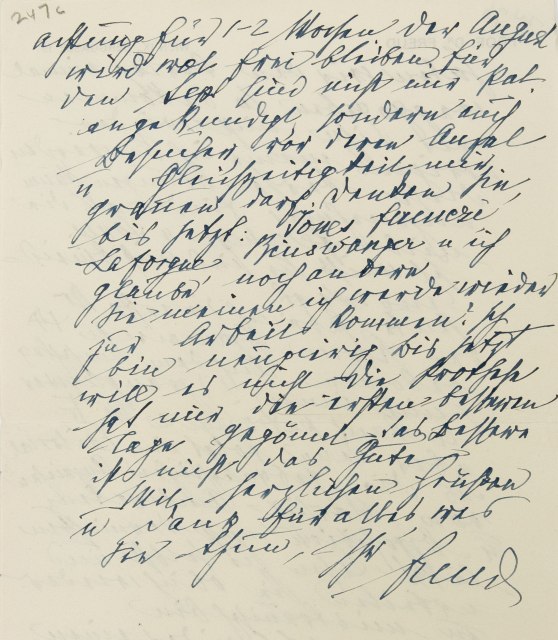 247c
achtung für 1-2 Wochen der August
wird wol frei bleiben. Für
den Sept sind nicht nur Pat.
angekündigt, sondern auch
Besucher, vor deren Anzal
u Gleichzeitigkeit mir
grauen darf. Denken Sie,
bis jetzt: Jones Ferenczi
Laforgue Binswanger u ich
glaube, noch andere
Sie meinen ich werde wieder
zur Arbeit kommen? Ich
bin neugierig bis jetzt
will es nicht. Die Prothese
hat mir die ersten besseren
Tage gegönnt. Das Bessere
ist nicht das Gute
Mit herzlichen Grüßen
u Dank für alles, was
Sie thun, Ihr Freud